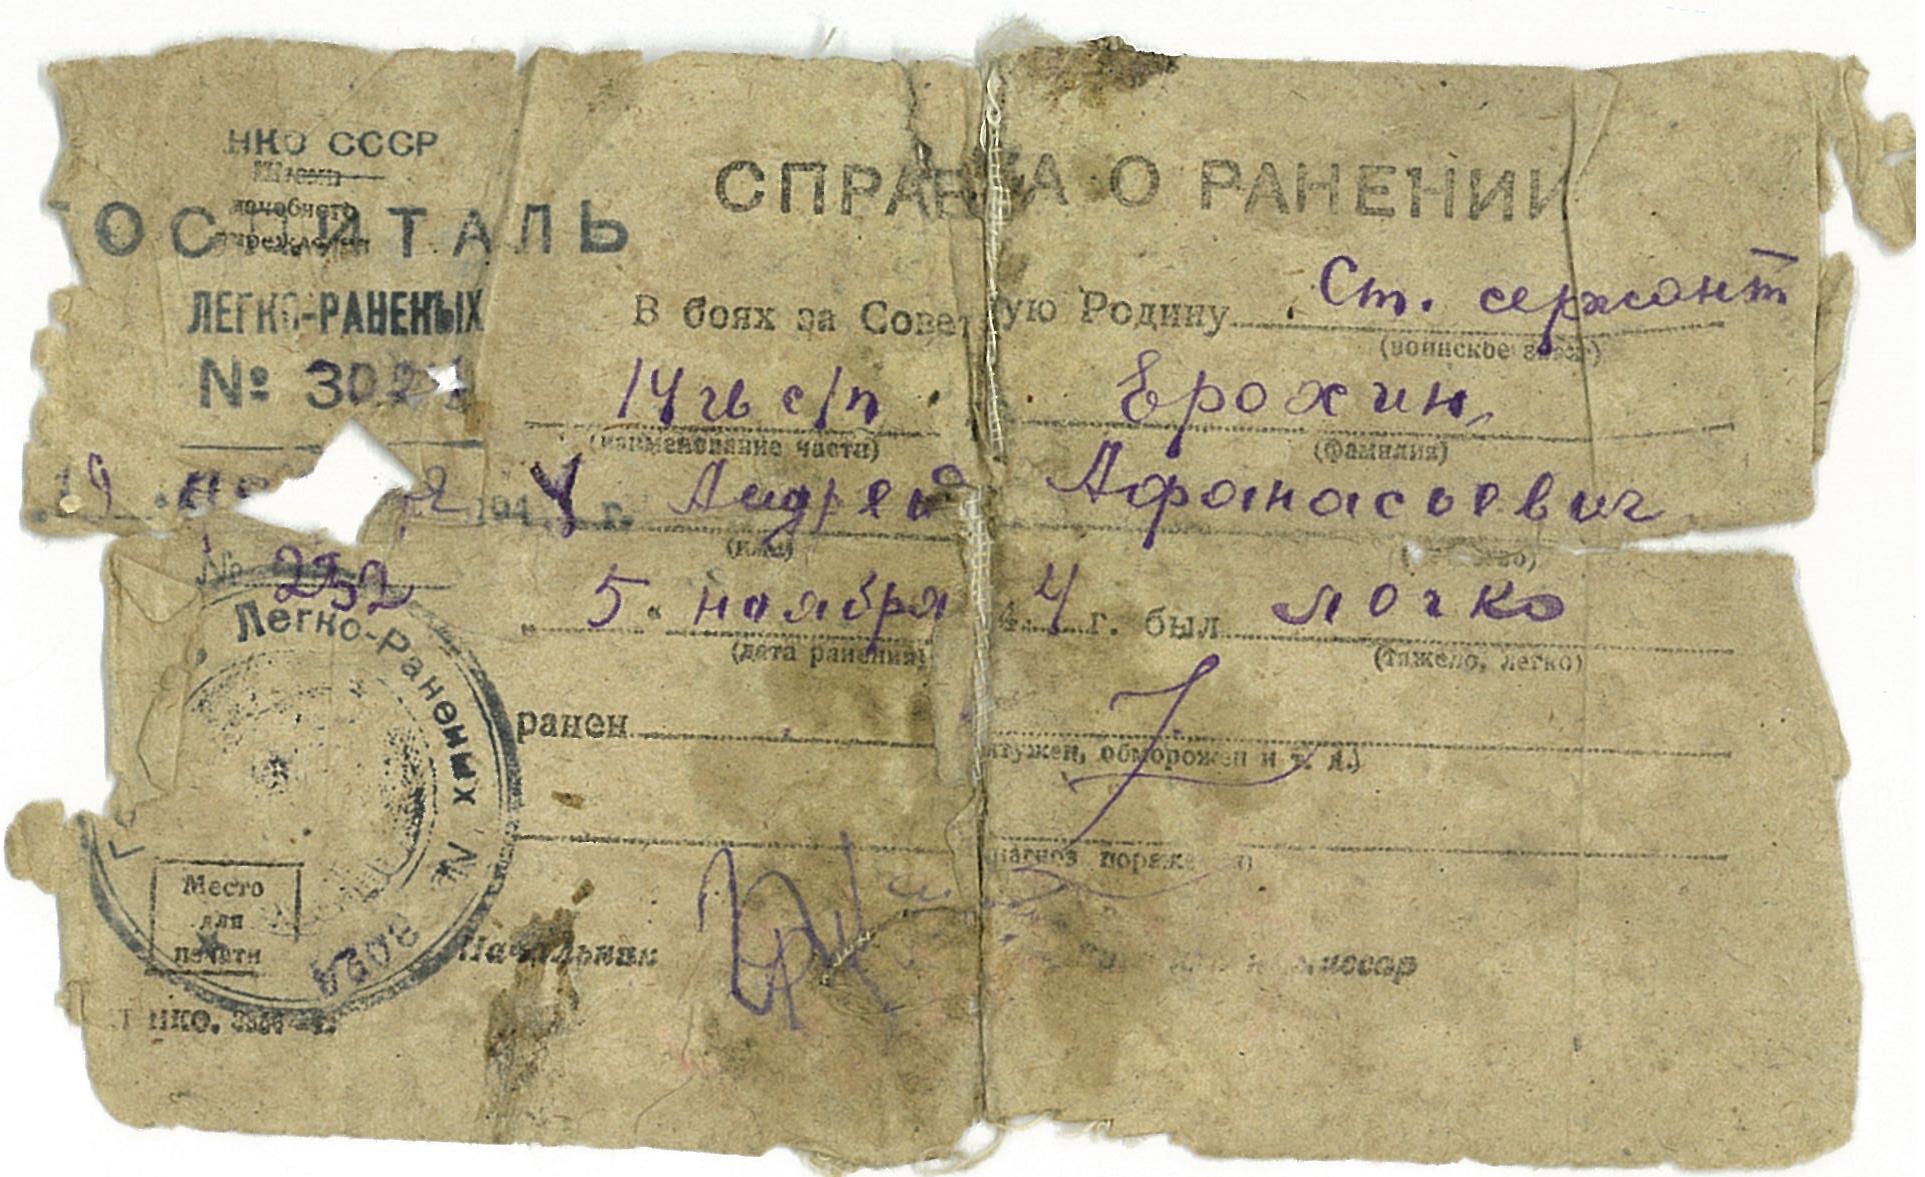 НКО СССР
лечебного
ОСПИТАЛЬ
ЛЕГКО-РАНЕНЫХ
№ 302
19
194 4 г.
№ 232
СПРАВКА О РАНЕНИИ
В боях за Совет ую Родину Ст. сержант
(воинское зван )
14 гв с/п Ерохин
(наименование части) (фамилия)
Андрей Афанасьевич
(имя)
5 " ноября 4 4 г. был легко
(дата ранения) (тяжело, легко)
ранен
нтужен, обморожен и т. д.)
иагноз пораже
Легко-Раненых № 3024
Место
для
печати
Начальник миссар
НКО.